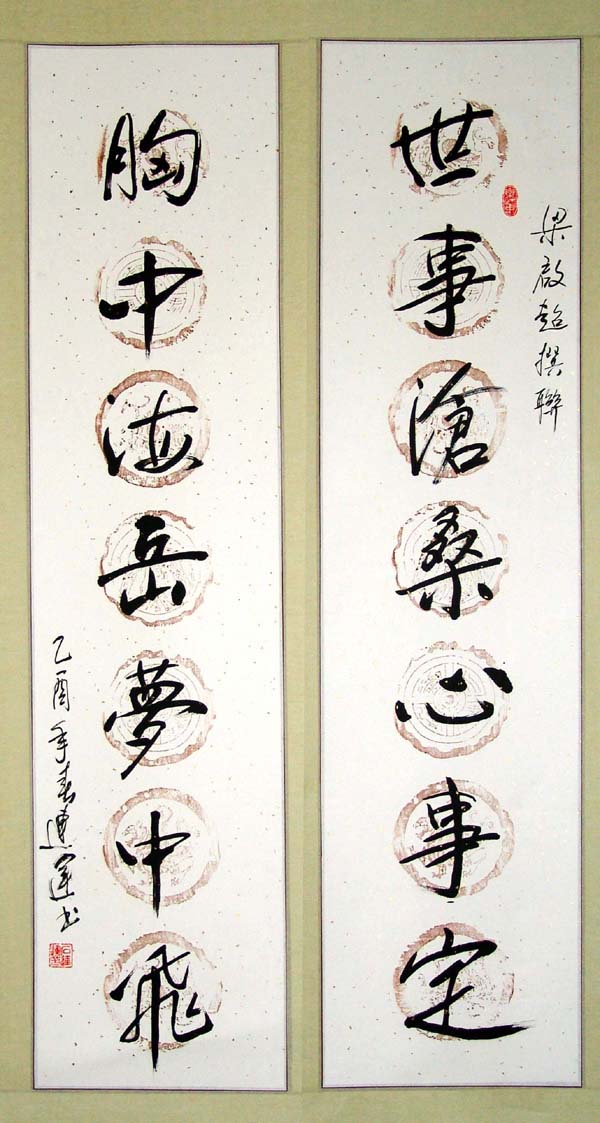 梁啟超撰聯
世事滄桑心事定
胸中海岳夢中飛
乙酉年春連運书